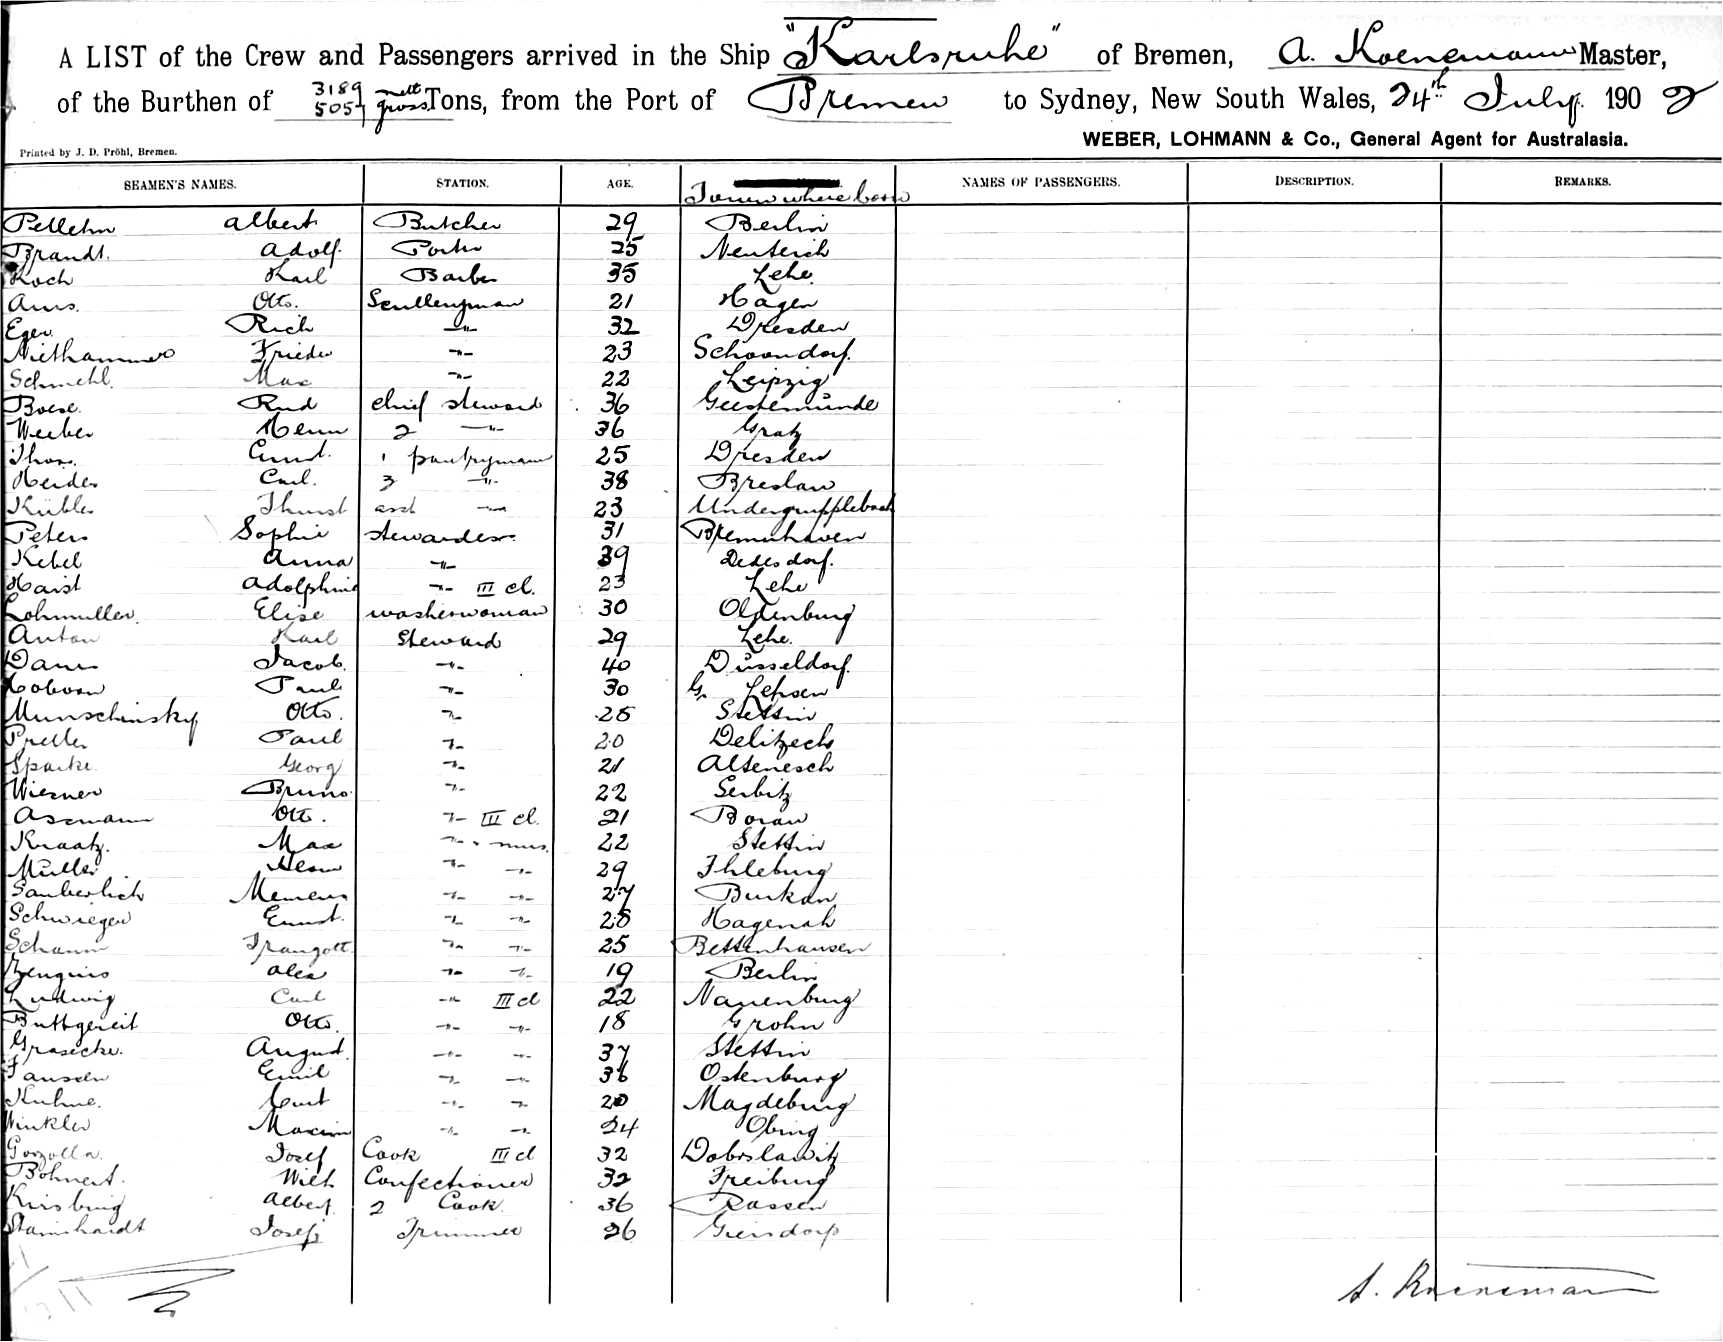 A LIST of the Crew and Passengers arrived in the Ship "Karlsruhe" of Bremen, A. Koenemann Master,
of the Burthen of 3189 nett 5057 gross Tons, from the Port of Bremen to Sydney, New South Wales, 24th July 1902
WEBER, LOHMANN & Co., General Agent for Australasia.
Printed by J. D. Pröhl, Bremen.
SEAMEN'S NAMES. STATION. AGE. Town where born NAMES OF PASSENGERS. DESCRIPTION. REMARKS.
Albert Butcher 29 Berlin
Brandt. Adolf. Porter 25 Neuterich
Koch Karl Barber 35 Lehe
Otto. Sculleryman 21 Hagen
Eger Rich -"- 32 Dresden
Niethammer Frieder -"- 23 Schoondorf.
Schmehl. Max -"- 22 Leipzig
Boese. Rud chief steward 36 Geestemünde
Weeber Herm 2 -"- 36 Gratz
Ernst. 1 pantryman 25 Dresden
Heider Carl. 3 -"- 38 Breslau
Kübler asst -"- 23
Peters Sophie stewardess 31 Bremerhaven
Kebel Anna -"- 39 Dedesdorf.
Harst Adolphine -"- III cl. 23 Lehe
Lohmuller. Elise washerwoman 30 Oldenburg
Anton Karl Steward 29 Lehe.
Jacob. -"- 40 Düsseldorf.
Paul -"- 30 G.
Munschinsky Otto. -"- Stettin
Preller Paul -"- 20 Delitzsch
Sparke Georg -"- 21 Altenesch
Wiesner Bruno -"- 22 Serbitz
Assmann Otto. -"- III cl. 21 Borau
Kraatz. Max -"- mus. 22 Stettin
Müller Herm -"- -"- 29 Ihleburg
Sauberlich -"- -"- 27 Burkau
Schwieger Ernst. -"- -"- 28 Hagenah
Schamm Traugott -"- -"- 25 Bettenhausen
Alex -"- -"- 19 Berlin
Ludwig Carl -"- III cl 22 Nauenburg
Buttgereit Otto. -"- -"- 18 Grohn
Grasecke. August. -"- -"- 37 Stettin
Jansen Emil -"- -"- 36 Ostenburg
Kuhne. Curt -"- -"- 20 Magdeburg
Winkler Maxim -"- -"- 24 Obing
Gorzolla. Josef Cook III cl 32 Dobrslawitz
Bohnert. Wilh Confectioner 32 Freiburg
Albert. 2 Cook. 36 Rassen
Stamshardt Josef Trimmer 26 Giersdorf
A. Koenemann